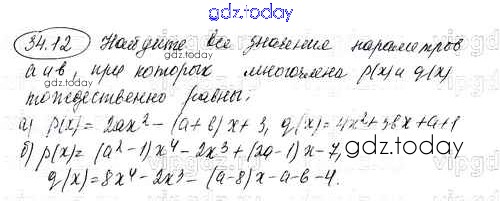 gdz.today
34.12 Найдите все значения параметров
а и в, при которых многочлена p(x) и g(x)
gdz.today
тождественно равны:
а) p(x) = 2ax² - (a + b)x + 3, g(x) = 4x² + 3bx + a + 1
б) p(x) = (a² - 1)x⁴ - 2x³ + (2a - 1)x - 7,
gdz.today
g(x) = 8x⁴ - 2x³ - (a - 8)x - a - b - 4.